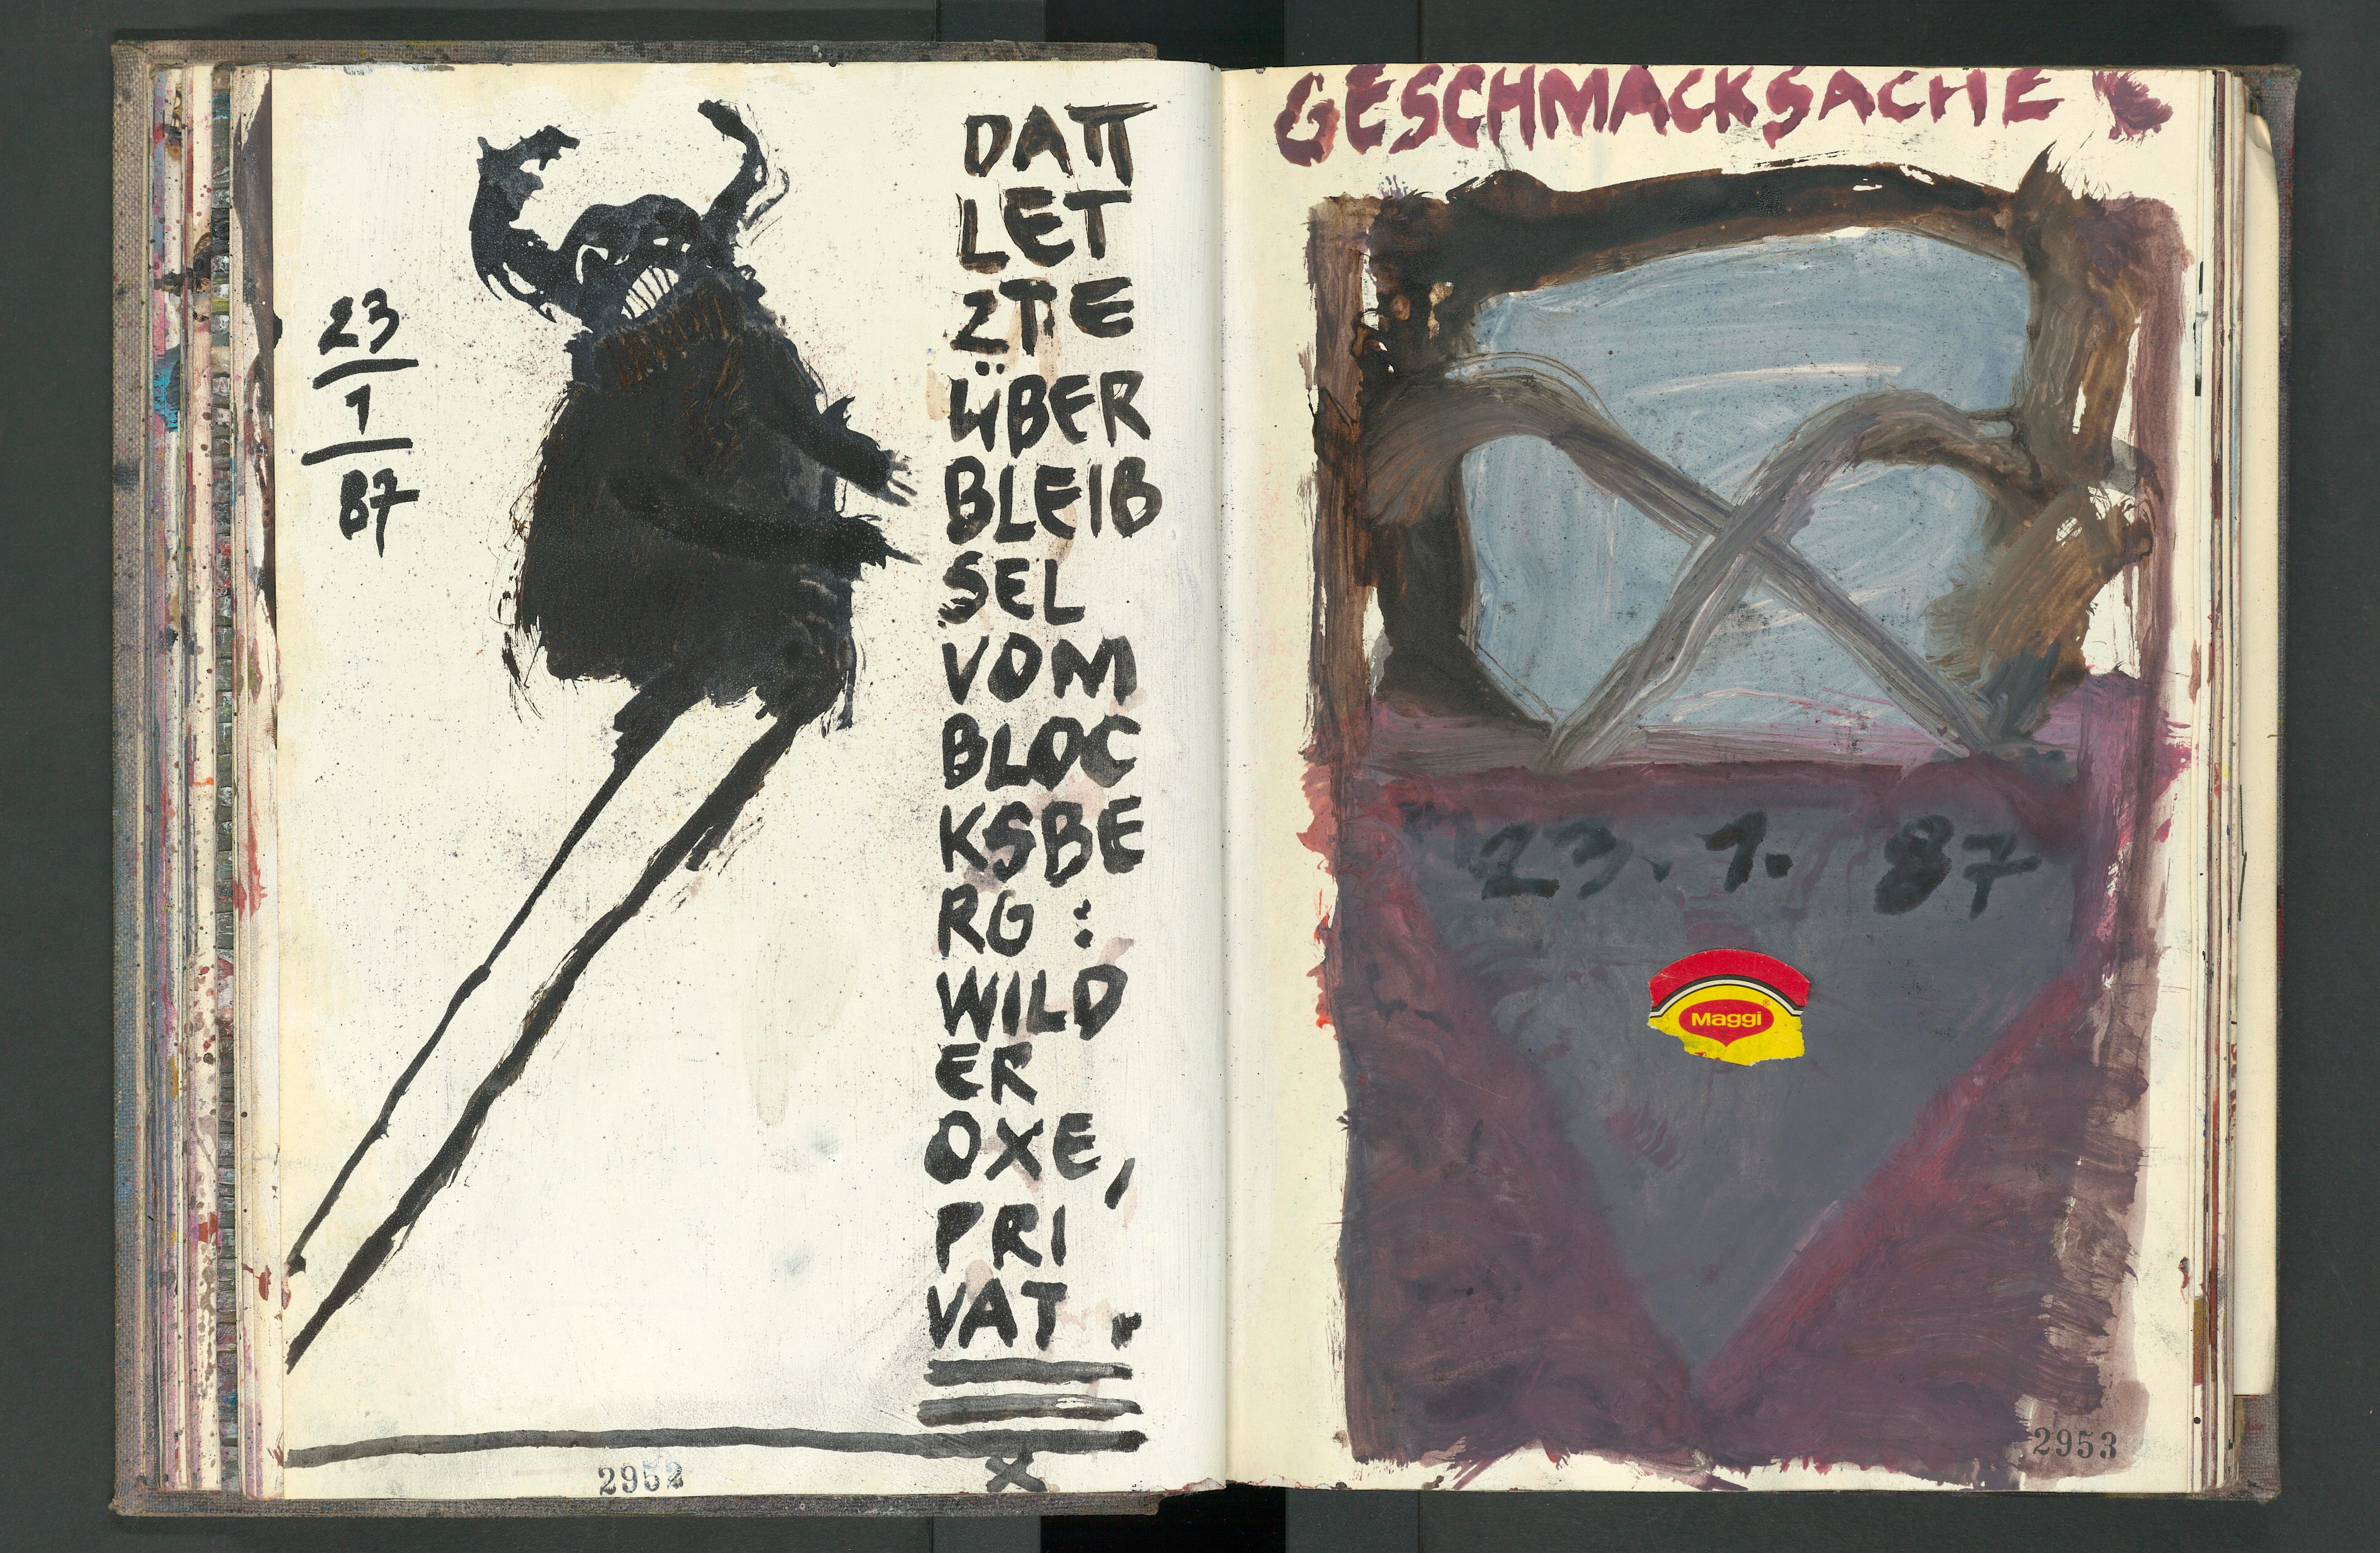 23
1
87
DATT
LET
ZTE
ÜBER
BLEIB
SEL
VOM
BLOC
KSBE
RG :
WILD
ER
OXE,
PRI
VAT .
X
2952
GESCHMACKSACHE
23. 1. 87
Maggi
2953